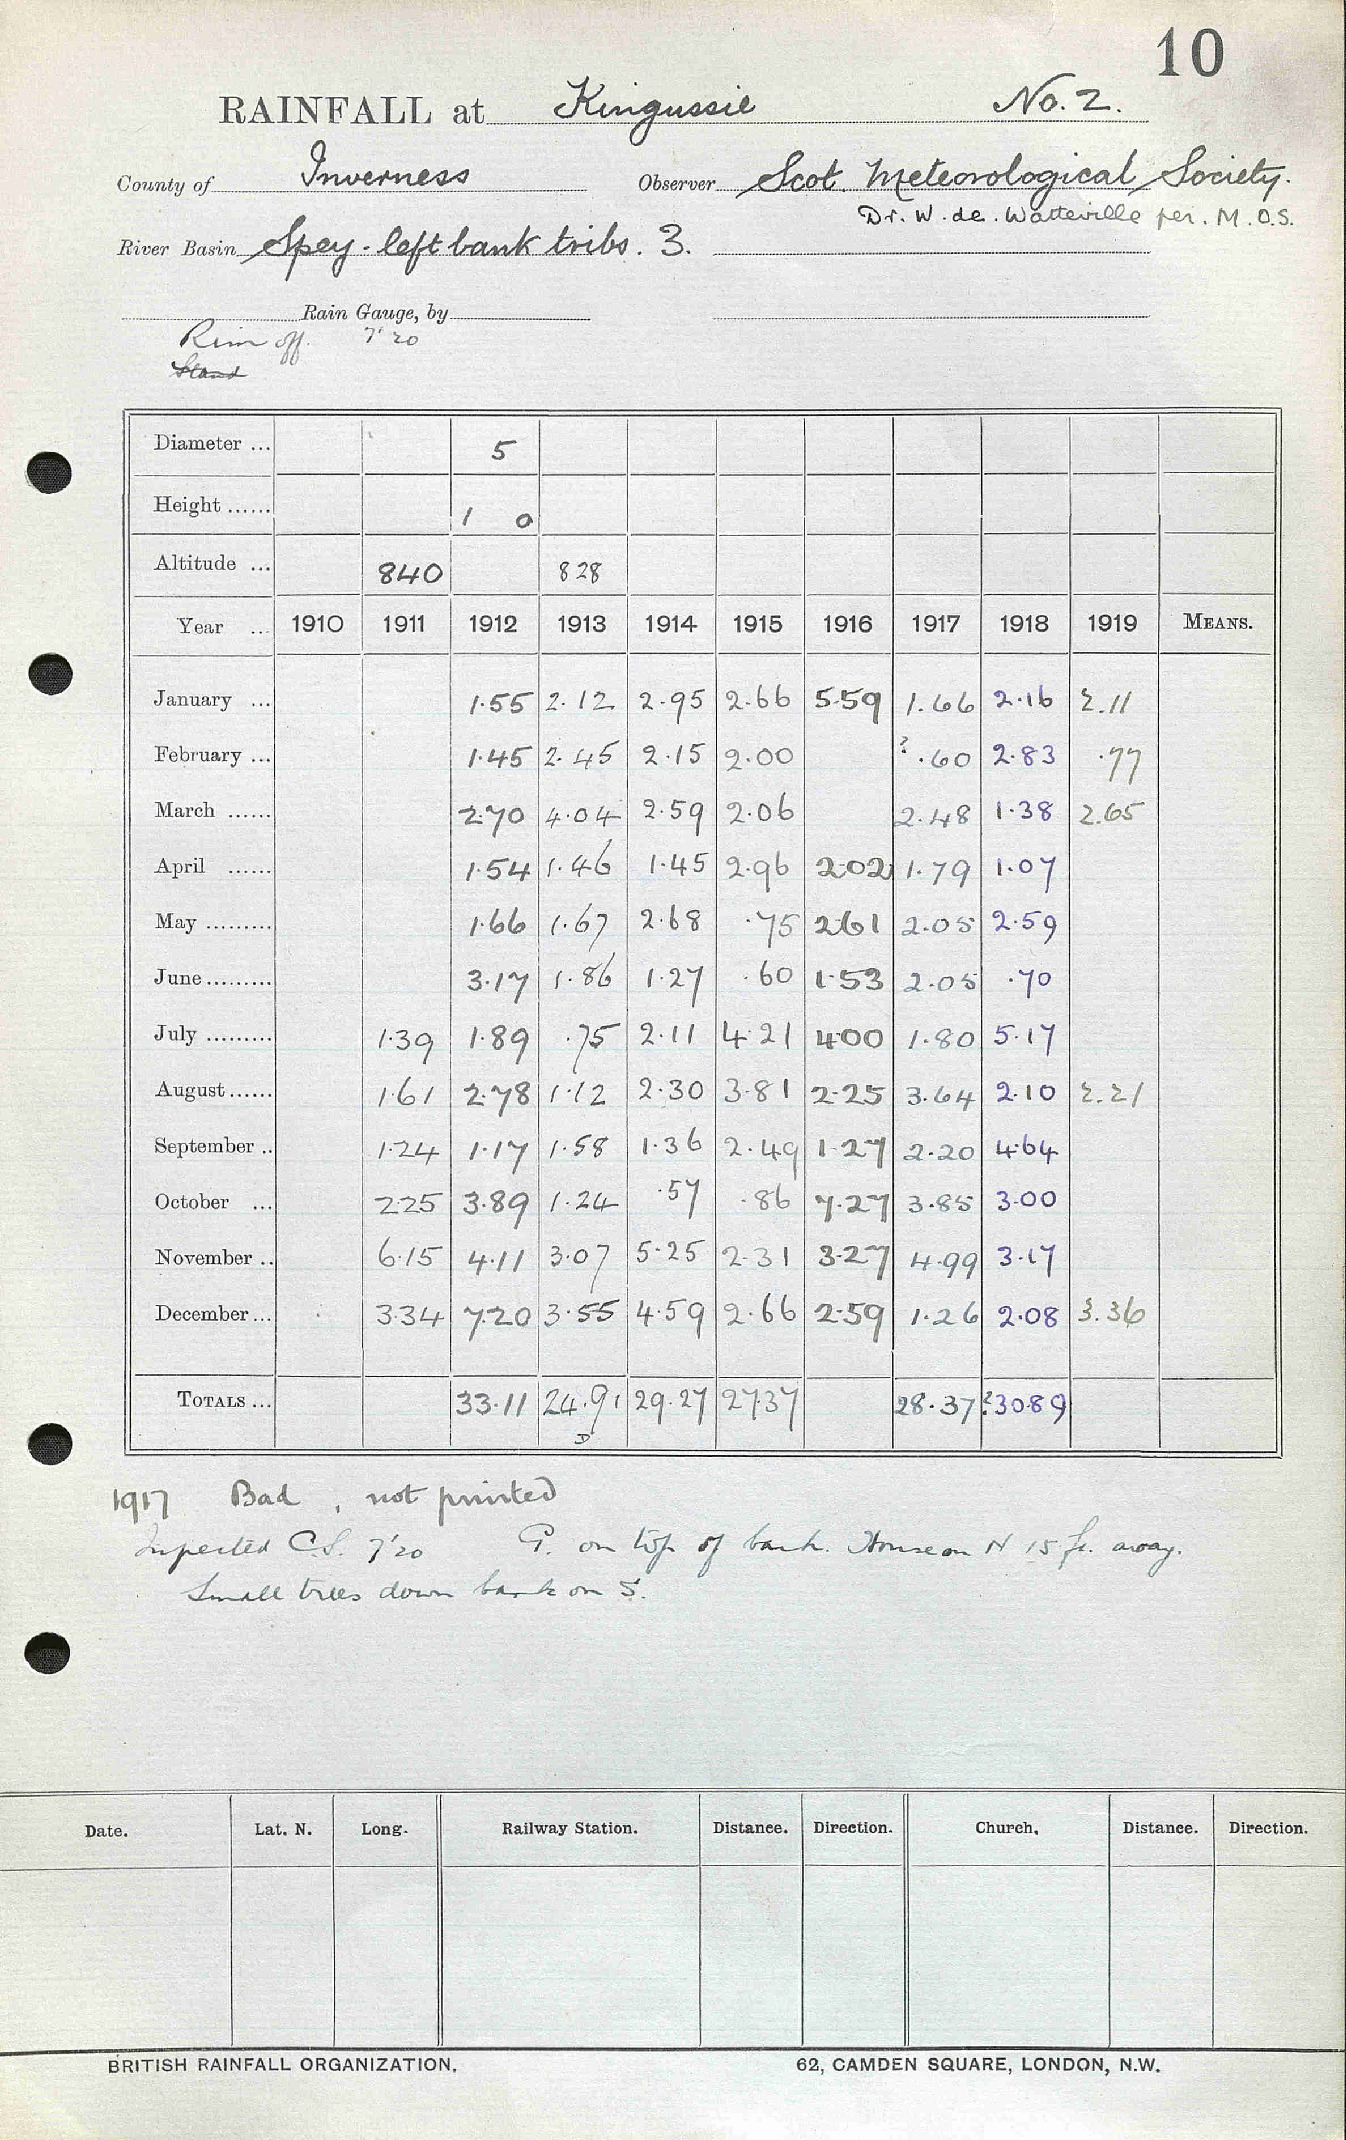 10
RAINFALL at Kingussie No. 2.
County of Inverness Observer Scot. Meteorological Society.
Dr. W. de. Watteville per. M.O.S.
River Basin Spey - left bank tribs. 3.
Rain Gauge, by
Rim off. 7'20
Stand
Diameter ... 5
Height ...... 1 0
Altitude ... 840 828
Year ... 1910 1911 1912 1913 1914 1915 1916 1917 1918 1919 MEANS.
January ... 1.55 2.12 2.95 2.66 5.59 1.66 2.16 2.11
February ... 1.45 2.45 2.15 2.00 ? .60 2.83 .77
March ...... 2.70 4.04 2.59 2.06 2.48 1.38 2.65
April ...... 1.54 1.46 1.45 2.96 2.02 1.79 1.07
May ......... 1.66 1.67 2.68 .75 2.61 2.05 2.59
June ......... 3.17 1.86 1.27 .60 1.53 2.05 .70
July ......... 1.39 1.89 .75 2.11 4.21 4.00 1.80 5.17
August ...... 1.61 2.78 1.12 2.30 3.81 2.25 3.64 2.10 2.21
September .. 1.24 1.17 1.58 1.36 2.49 1.27 2.20 4.64
October ... 2.25 3.89 1.24 .57 .86 7.27 3.85 3.00
November .. 6.15 4.11 3.07 5.25 2.31 3.27 4.99 3.17
December ... 3.34 7.20 3.55 4.59 2.66 2.59 1.26 2.08 3.36
TOTALS ... 33.11 24.91 29.27 27.37 28.37 ?30.89
D
1917 Bad, not printed
Inspected C.S. 7'20 G. on top of bank. House on N 15 ft. away.
Small trees down bank on S.
Date. Lat. N. Long. Railway Station. Distance. Direction. Church. Distance. Direction.
BRITISH RAINFALL ORGANIZATION. 62, CAMDEN SQUARE, LONDON, N.W.